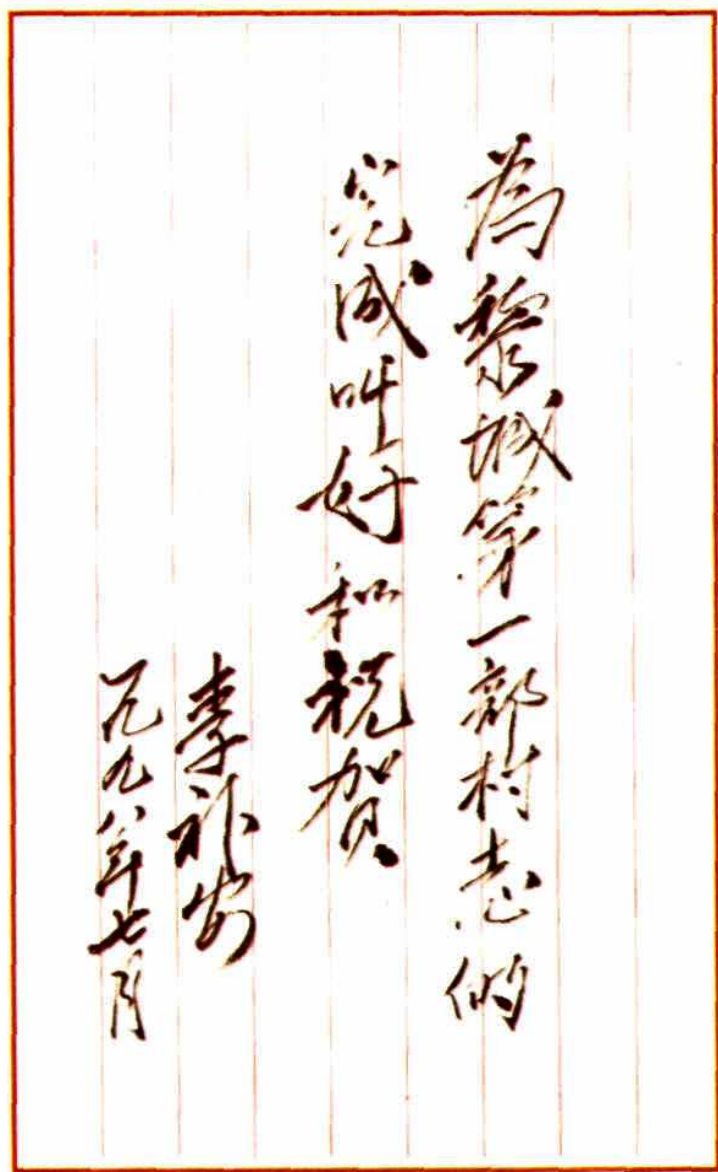 為黎城第一部村志的
完成叫好和祝贺
李补安
一九九八年七月